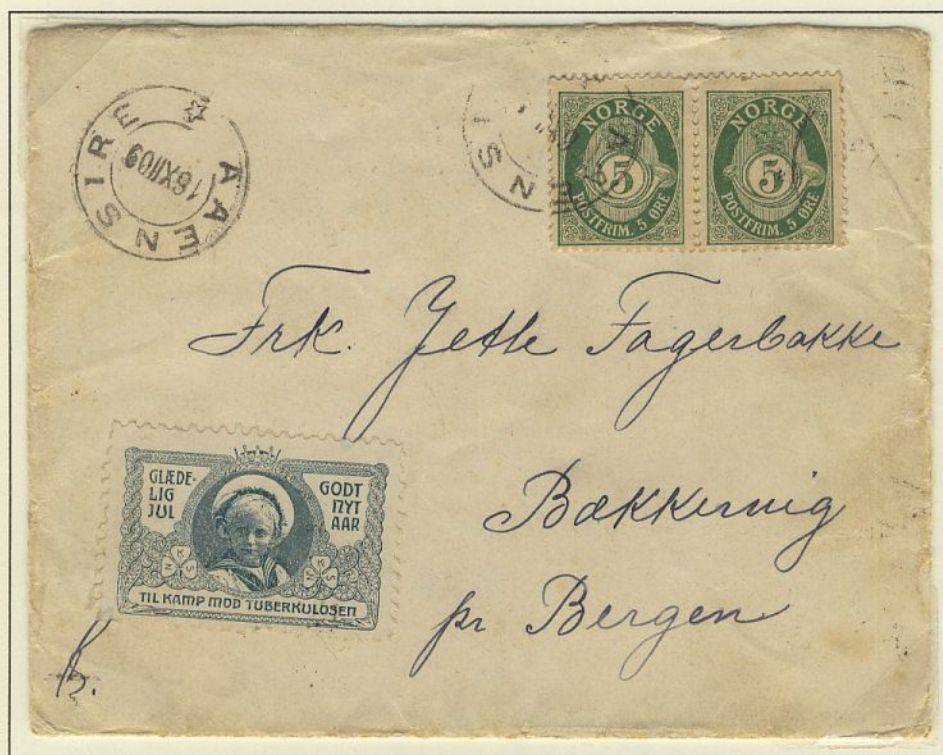 AAENSIRE
16XII09
NORGE
5
POSTFRIM. 5 ØRE
NORGE
5
POSTFRIM. 5 ØRE
Frk. Jette Fagerbakke
Bækkervig
pr Bergen
GLÆDE-
LIG
JUL
GODT
NYT
AAR
N K S
N K S
TIL KAMP MOD TUBERKULOSEN